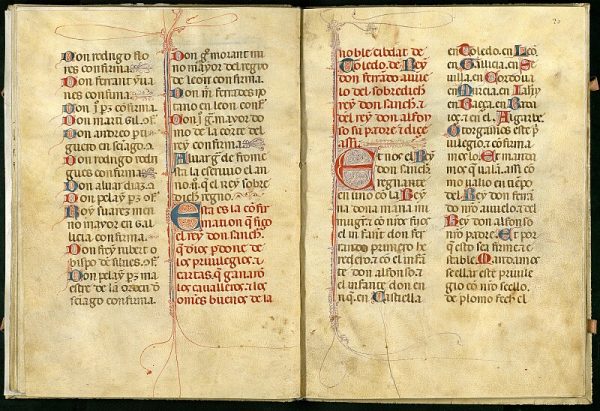 Don rodrigo flo
res confirma.
Don ferrant yua
nes confirma.
Don J. pz confirma.
Don marti gil. of.
Don andreo pti
guero en sciago. of.
Don rodrigo rodri
gues confirma.
Don aluar diaz. of.
Don pelay pz. of.
Roy suarez meri
no mayor en ga
licia confirma.
Don frey nubert o
bispo de silues. of.
Don pelay pz ma
estre de la orden d
sciago confirma.
Don gr morant mi
no mayor del regno
de leon confirma.
Don mr ferrandes no
tario en leon conf.
Don gr mayordo
mo de la corte del
rey confirma.
Aluar gr de frome
sta la escriuio el an
no. q el rey sobre
dicho regno.
Esta es la confir
mation que fiço
el rey don sancho.
que dios perdone de
los priuilegios. et
cartas. que ganaro
los caualleros. et los
omes buenos de la
noble cibdat de
Toledo. de Rey
don ferrando auue
lo del sobredicho
rey don sancho. et
del rey don alfon
so su padre et dize
assi.
Et nos el Rey
don sancho.
regnante
en uno con la Rey
na dona maria mi
mugier. et con nostro fijo
el infant don fer
rando primero he
redero. et con el infan
te don alfonso. et
el infante don en
riq. en Castiella
en Toledo. en Leon.
en Gallicia. en Se
uilla. en Cordoua
en Murcia. en Iahen
en Baeça. en Bada
ioç. et en el Algarbe.
Otorgamos este p
uilegio. et confirma
moslo. Et manda
mos que uala assi co
mo ualio en tiempo
del Rey don ferran
do nostro auuelo. et del
Rey don alfonso
nostro padre. Et por
que esto sea firme et
stabile. Mandamos
seellar este priuile
gio con nostro seello.
de plomo fecho el
20